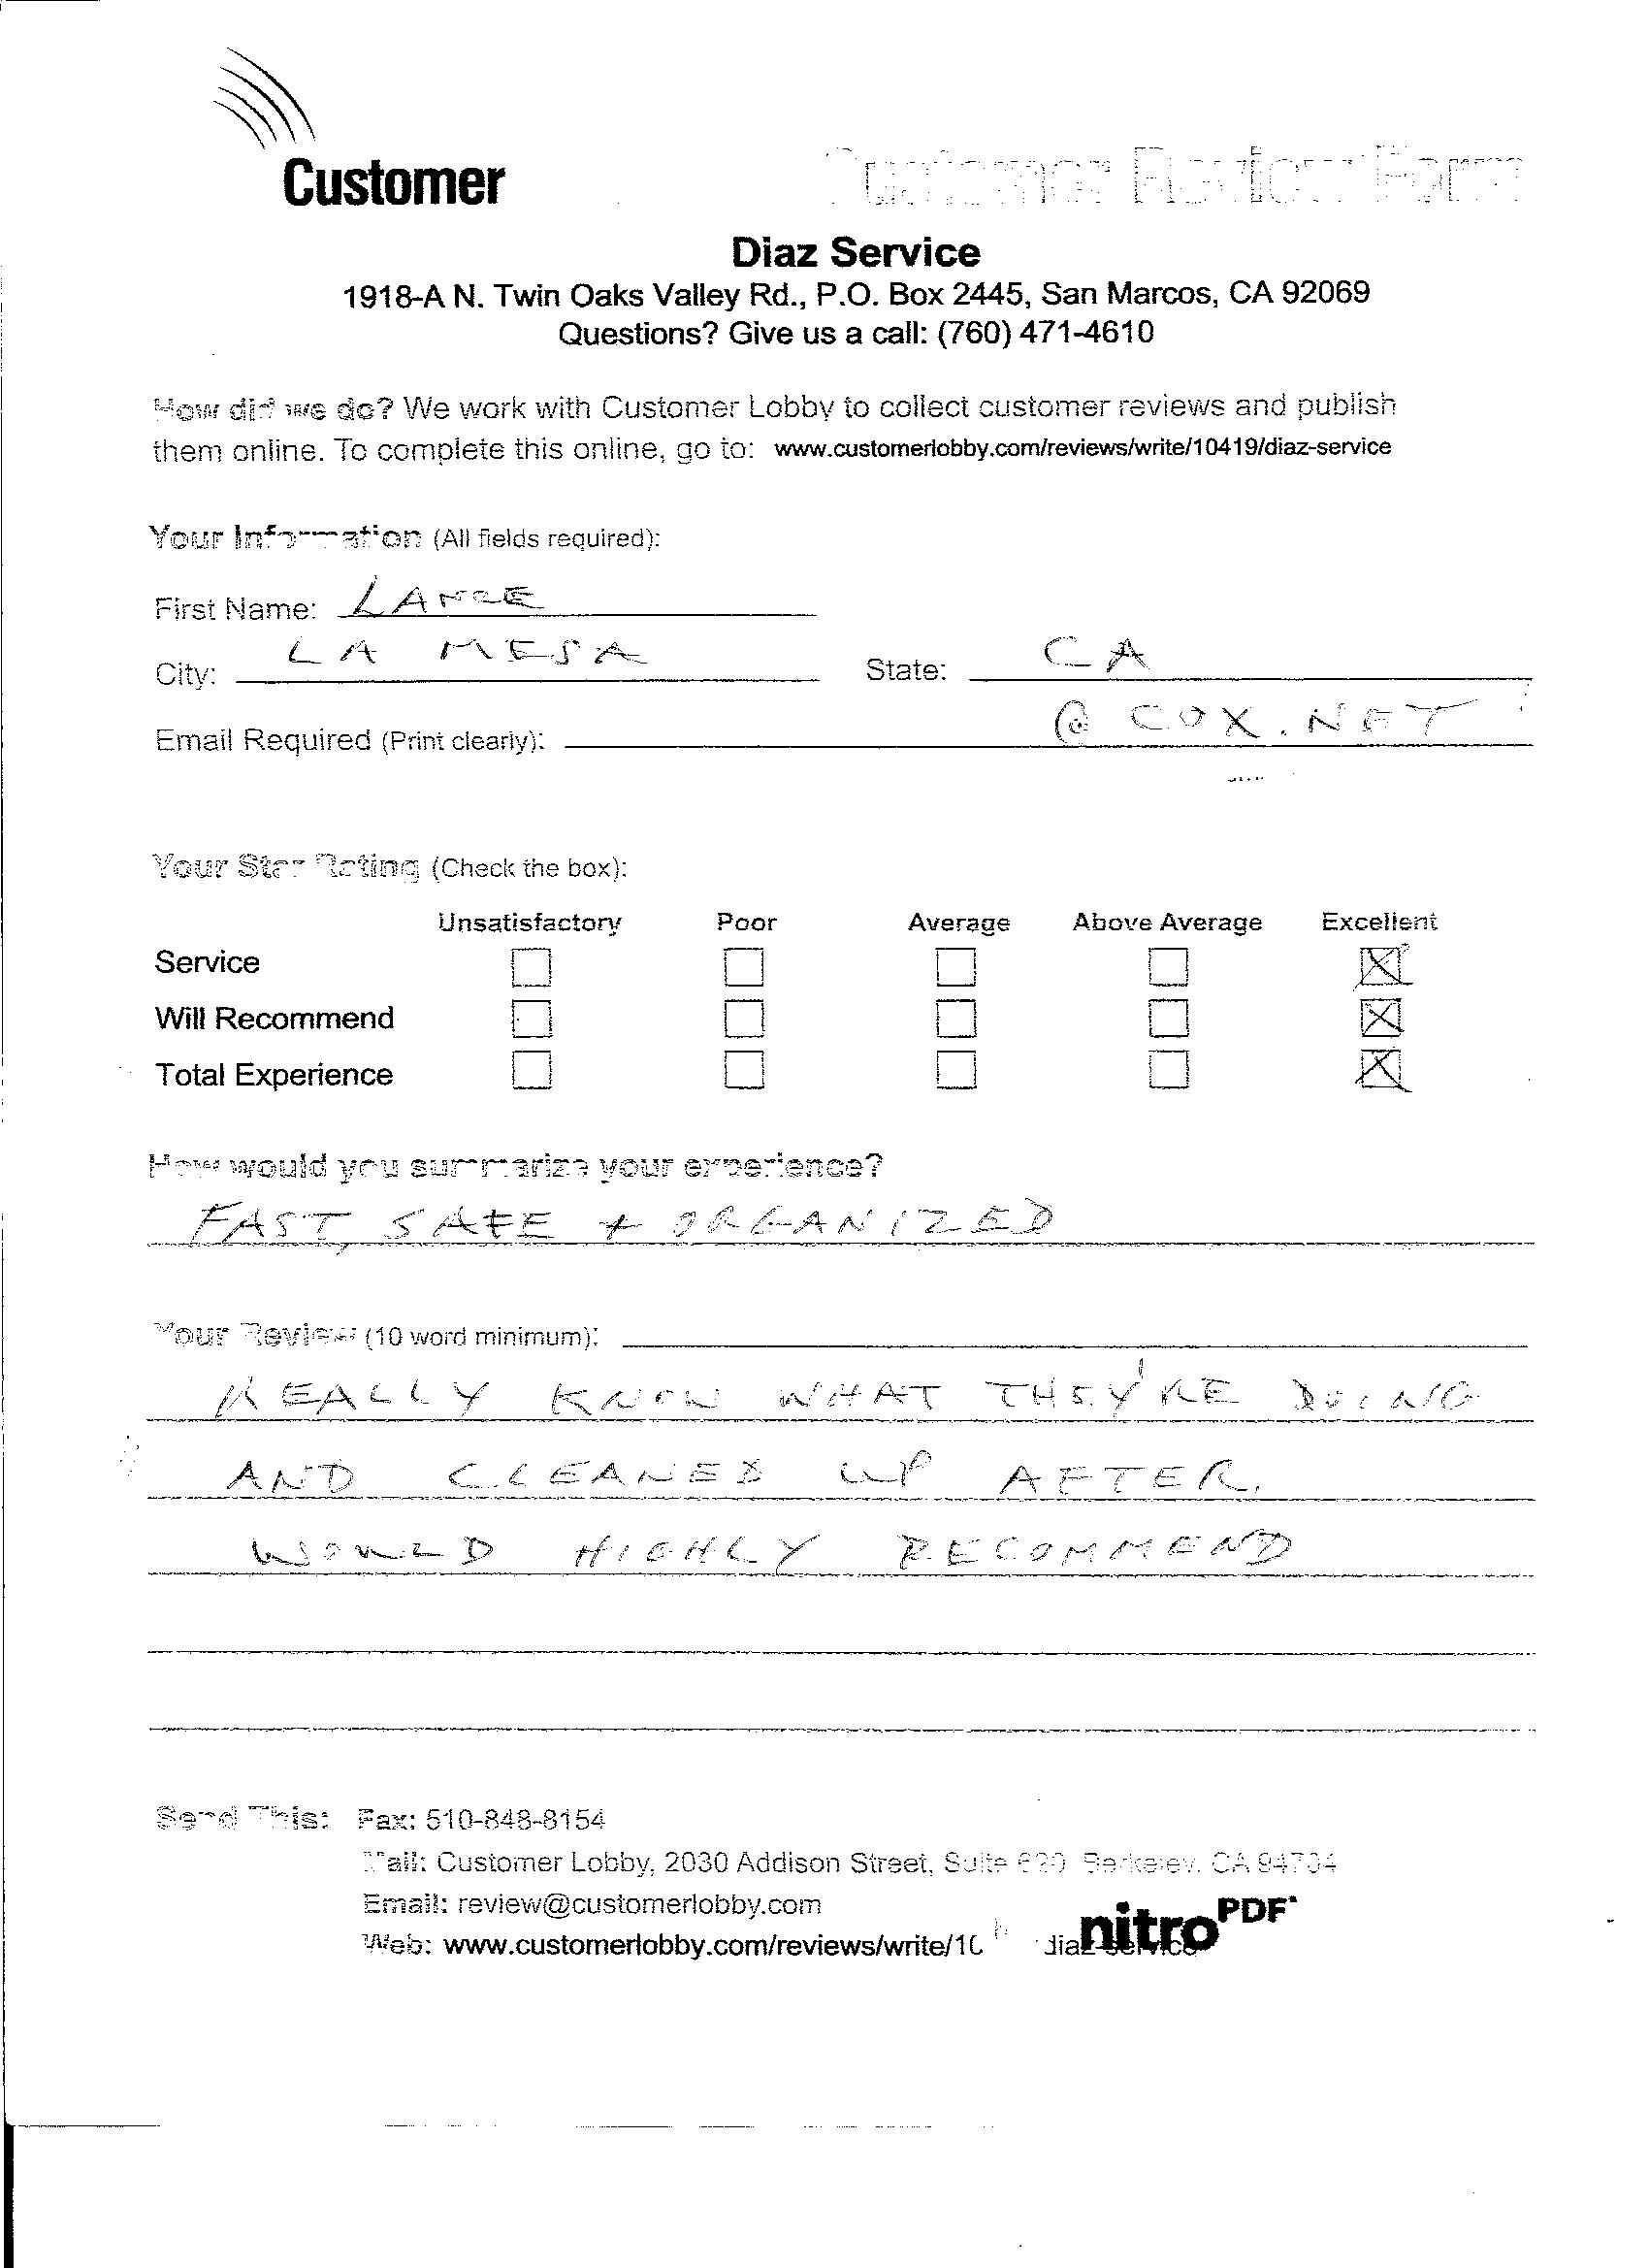 Customer
Customer Review Form
Diaz Service
1918-A N. Twin Oaks Valley Rd., P.O. Box 2445, San Marcos, CA 92069
Questions? Give us a call: (760) 471-4610
How did we do? We work with Customer Lobby to collect customer reviews and publish
them online. To complete this online, go to: www.customerlobby.com/reviews/write/10419/diaz-service
Your Information (All fields required):
First Name: LANCE
City: LA MESA State: CA
Email Required (Print clearly): @COX.NET
Your Star Rating (Check the box):
Unsatisfactory Poor Average Above Average Excellent
Service
Will Recommend
Total Experience
How would you summarize your experience?
FAST, SAFE + ORGANIZED
Your Review (10 word minimum):
REALLY KNOW WHAT THEY'RE DOING
AND CLEANED UP AFTER.
WOULD HIGHLY RECOMMEND
Send This: Fax: 510-848-8154
Mail: Customer Lobby, 2030 Addison Street, Suite Berkeley, CA 94704
Email: review@customerlobby.com
Web: www.customerlobby.com/reviews/write/10 diaz-service
nitro PDF